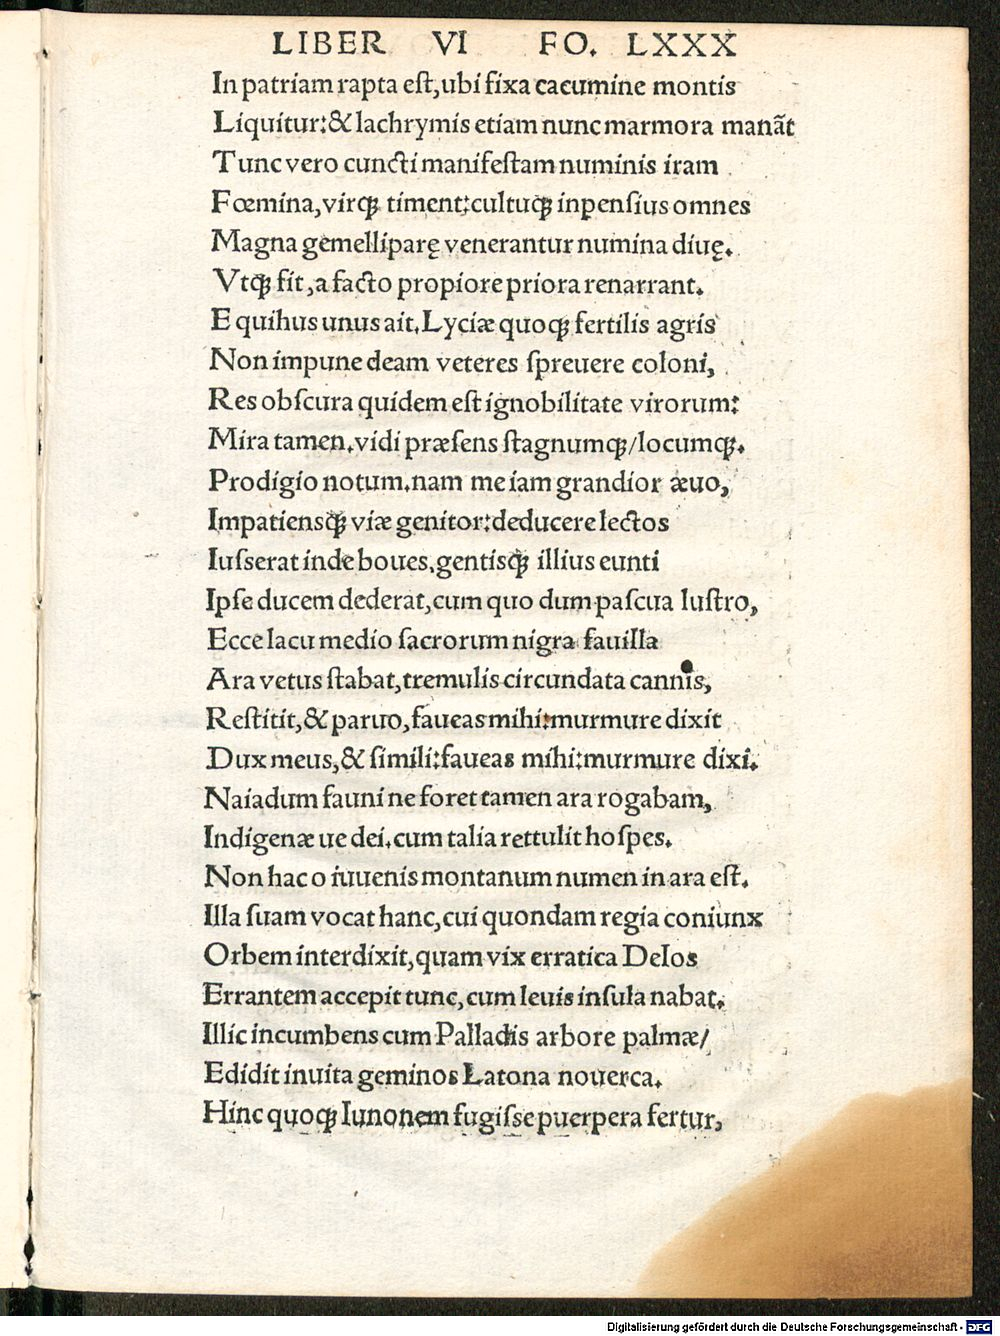 LIBER VI FO. LXXX
In patriam rapta eſt, ubi fixa cacumine montis
Liquitur: & lachrymis etiam nunc marmora manãt
Tunc vero cuncti manifeſtam numinis iram
Fœmina, virqꝫ timent: cultuqꝫ inpenſius omnes
Magna gemelliparę venerantur numina diuę.
Vtqꝫ fit, a facto propiore priora renarrant.
E quihus unus ait. Lyciæ quoqꝫ fertilis agris
Non impune deam veteres ſpreuere coloni,
Res obſcura quidem eſt ignobilitate virorum:
Mira tamen. vidi præſens ſtagnumqꝫ/locumqꝫ.
Prodigio notum. nam me iam grandior æuo,
Impatiensqꝫ viæ genitor: deducere lectos
Iuſſerat inde boues, gentisqꝫ illius eunti
Ipſe ducem dederat, cum quo dum paſcua luſtro,
Ecce lacu medio ſacrorum nigra fauilla
Ara vetus ſtabat, tremulis circundata cannis,
Reſtitit, & paruo, faueas mihi: murmure dixit
Dux meus, & ſimili: faueas mihi: murmure dixi.
Naiadum fauni ne foret tamen ara rogabam,
Indigenæ ue dei. cum talia rettulit hoſpes.
Non hac o iuuenis montanum numen in ara eſt.
Illa ſuam vocat hanc, cui quondam regia coniunx
Orbem interdixit, quam vix erratica Delos
Errantem accepit tunc, cum leuis inſula nabat.
Illic incumbens cum Palladis arbore palmæ/
Edidit inuita geminos Latona nouerca.
Hinc quoqꝫ Iunonem fugiſse puerpera fertur,
Digitalisierung gefördert durch die Deutsche Forschungsgemeinschaft - DFG